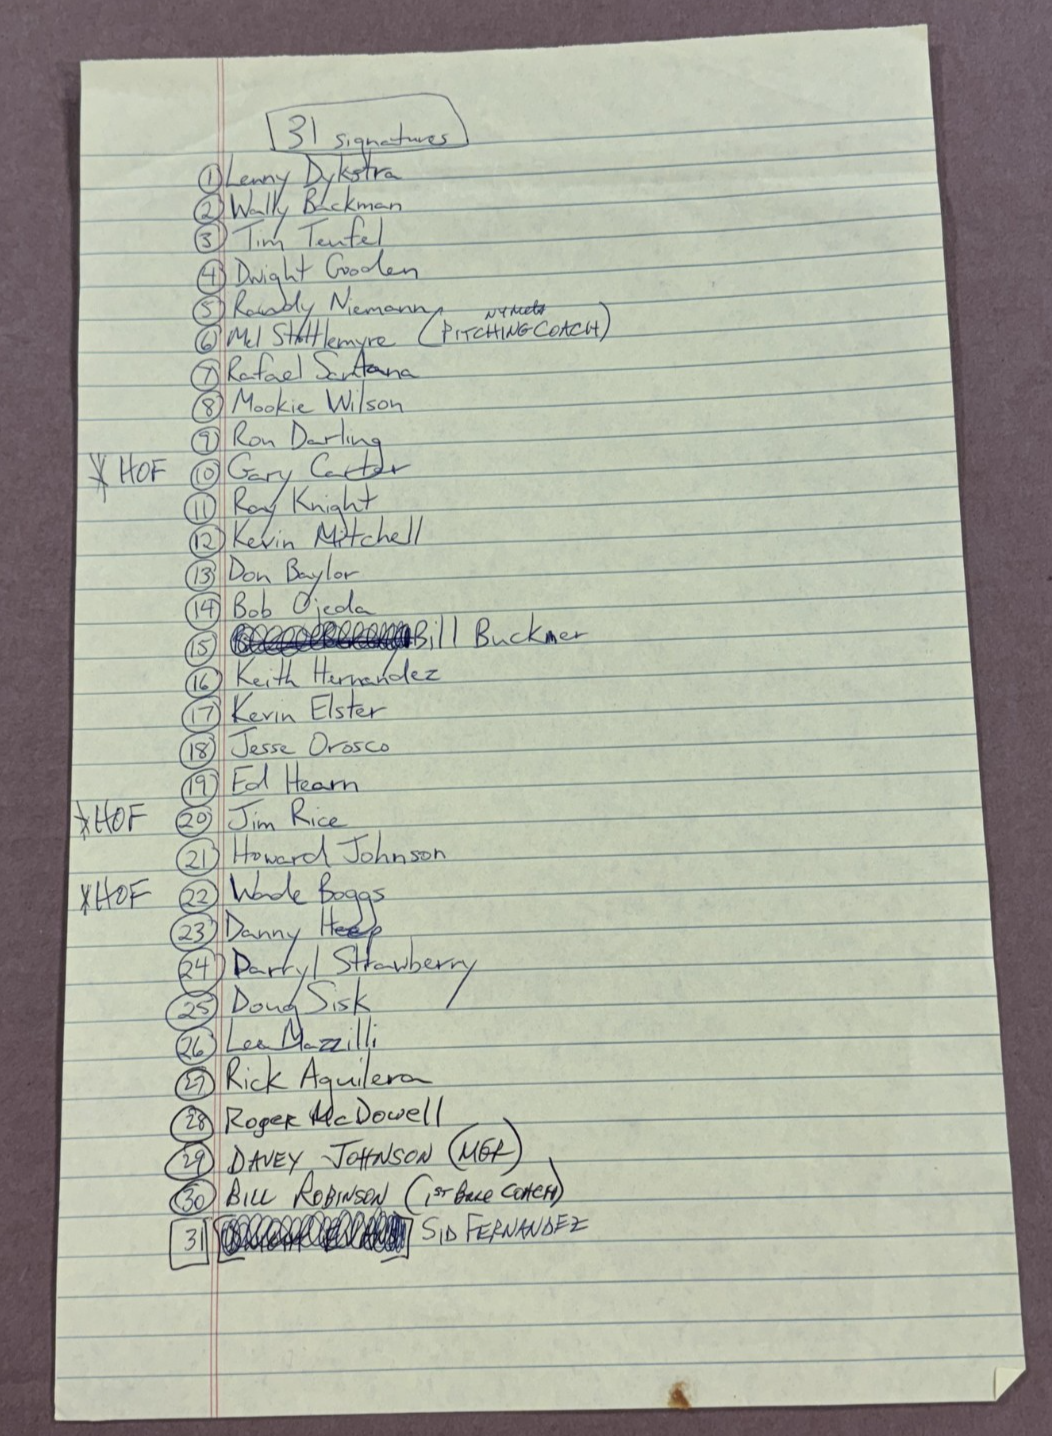 31 signatures
1 Lenny Dykstra
2 Wally Backman
3 Tim Teufel
4 Dwight Gooden
5 Randy Niemann
6 Mel Stottlemyre (NY Mets PITCHING COACH)
7 Rafael Santana
8 Mookie Wilson
9 Ron Darling
* HOF 10 Gary Carter
11 Ray Knight
12 Kevin Mitchell
13 Don Baylor
14 Bob Ojeda
15 Bill Buckner
16 Keith Hernandez
17 Kevin Elster
18 Jesse Orosco
19 Ed Hearn
* HOF 20 Jim Rice
21 Howard Johnson
* HOF 22 Wade Boggs
23 Danny Heep
24 Darryl Strawberry
25 Doug Sisk
26 Lee Mazzilli
27 Rick Aguilera
28 Roger McDowell
29 DAVEY JOHNSON (MGR)
30 BILL ROBINSON (1ST Base COACH)
31 SID FERNANDEZ